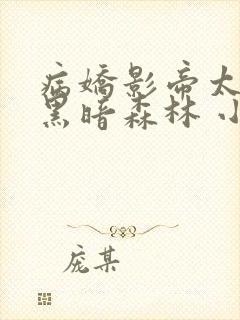 病娇影帝太
黑暗森林 小
庞某